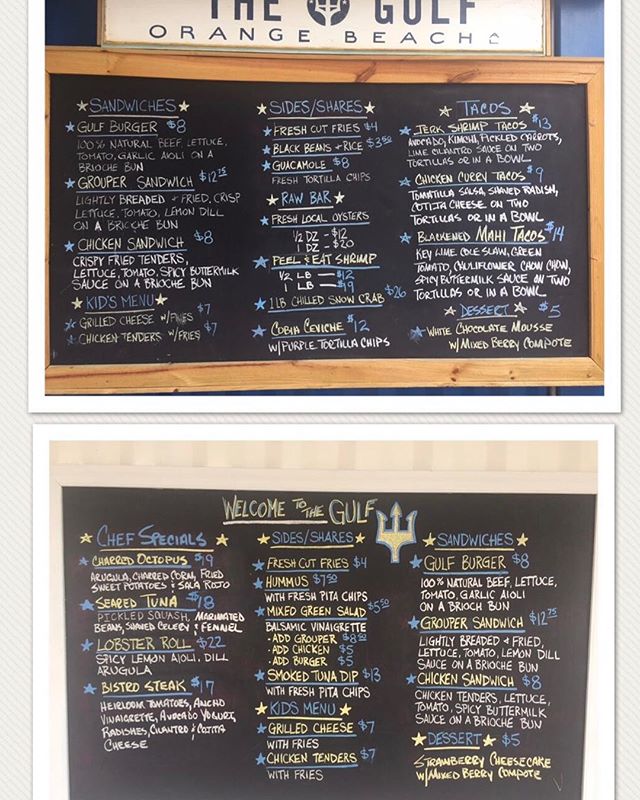 THE GULF
ORANGE BEACH
SANDWICHES
GULF BURGER $8
100% NATURAL BEEF, LETTUCE,
TOMATO, GARLIC AIOLI ON A
BRIOCHE BUN
GROUPER SANDWICH $12.75
LIGHTLY BREADED + FRIED, CRISP
LETTUCE, TOMATO, LEMON DILL
ON A BRIOCHE BUN
CHICKEN SANDWICH $8
CRISPY FRIED TENDERS,
LETTUCE, TOMATO, SPICY BUTTERMILK
SAUCE ON A BRIOCHE BUN
KID'S MENU
GRILLED CHEESE W/FRIES $7
CHICKEN TENDERS W/FRIES $7
SIDES/SHARES
FRESH CUT FRIES $4
BLACK BEANS + RICE $3.50
GUACAMOLE $8
FRESH TORTILLA CHIPS
RAW BAR
FRESH LOCAL OYSTERS
1/2 DZ - $12
1 DZ - $20
PEEL & EAT SHRIMP
1/2 LB — $12
1 LB — $19
1 LB CHILLED SNOW CRAB $26
COBIA CEVICHE $12
W/PURPLE TORTILLA CHIPS
TACOS
JERK SHRIMP TACOS $13
AVOCADO, KIMCHI, PICKLED CARROTS,
LIME CILANTRO SAUCE ON TWO
TORTILLAS OR IN A BOWL
CHICKEN CURRY TACOS $9
TOMATILLA SALSA, SHAVED RADISH,
COTIJA CHEESE ON TWO
TORTILLAS OR IN A BOWL
BLACKENED MAHI TACOS $14
KEY LIME COLE SLAW, GREEN
TOMATO, CAULIFLOWER CHOW CHOW,
SPICY BUTTERMILK SAUCE ON TWO
TORTILLAS OR IN A BOWL
DESSERT $5
WHITE CHOCOLATE MOUSSE
W/MIXED BERRY COMPOTE
WELCOME TO THE GULF
CHEF SPECIALS
CHARRED OCTOPUS $19
ARUGULA, CHARRED CORN, FRIED
SWEET POTATOES & SALSA ROJO
SEARED TUNA $18
PICKLED SQUASH, MARINATED
BEANS, SHAVED CELERY & FENNEL
LOBSTER ROLL $22
SPICY LEMON AIOLI, DILL
ARUGULA
BISTRO STEAK $17
HEIRLOOM TOMATOES, ANCHO
VINAIGRETTE, AVOCADO YOGURT,
RADISHES, CILANTRO & COTIJA
CHEESE
SIDES/SHARES
FRESH CUT FRIES $4
HUMMUS $7.50
WITH FRESH PITA CHIPS
MIXED GREEN SALAD $5.50
BALSAMIC VINAIGRETTE
• ADD GROUPER $8.50
• ADD CHICKEN $5
• ADD BURGER $5
SMOKED TUNA DIP $13
WITH FRESH PITA CHIPS
KID'S MENU
GRILLED CHEESE $7
WITH FRIES
CHICKEN TENDERS $7
WITH FRIES
SANDWICHES
GULF BURGER $8
100% NATURAL BEEF, LETTUCE,
TOMATO, GARLIC AIOLI
ON A BRIOCH BUN
GROUPER SANDWICH $12.75
LIGHTLY BREADED + FRIED,
LETTUCE, TOMATO, LEMON DILL
SAUCE ON A BRIOCH BUN
CHICKEN SANDWICH $8
CHICKEN TENDERS, LETTUCE,
TOMATO, SPICY BUTTERMILK
SAUCE ON A BRIOCH BUN
DESSERT $5
STRAWBERRY CHEESECAKE
W/MIXED BERRY COMPOTE